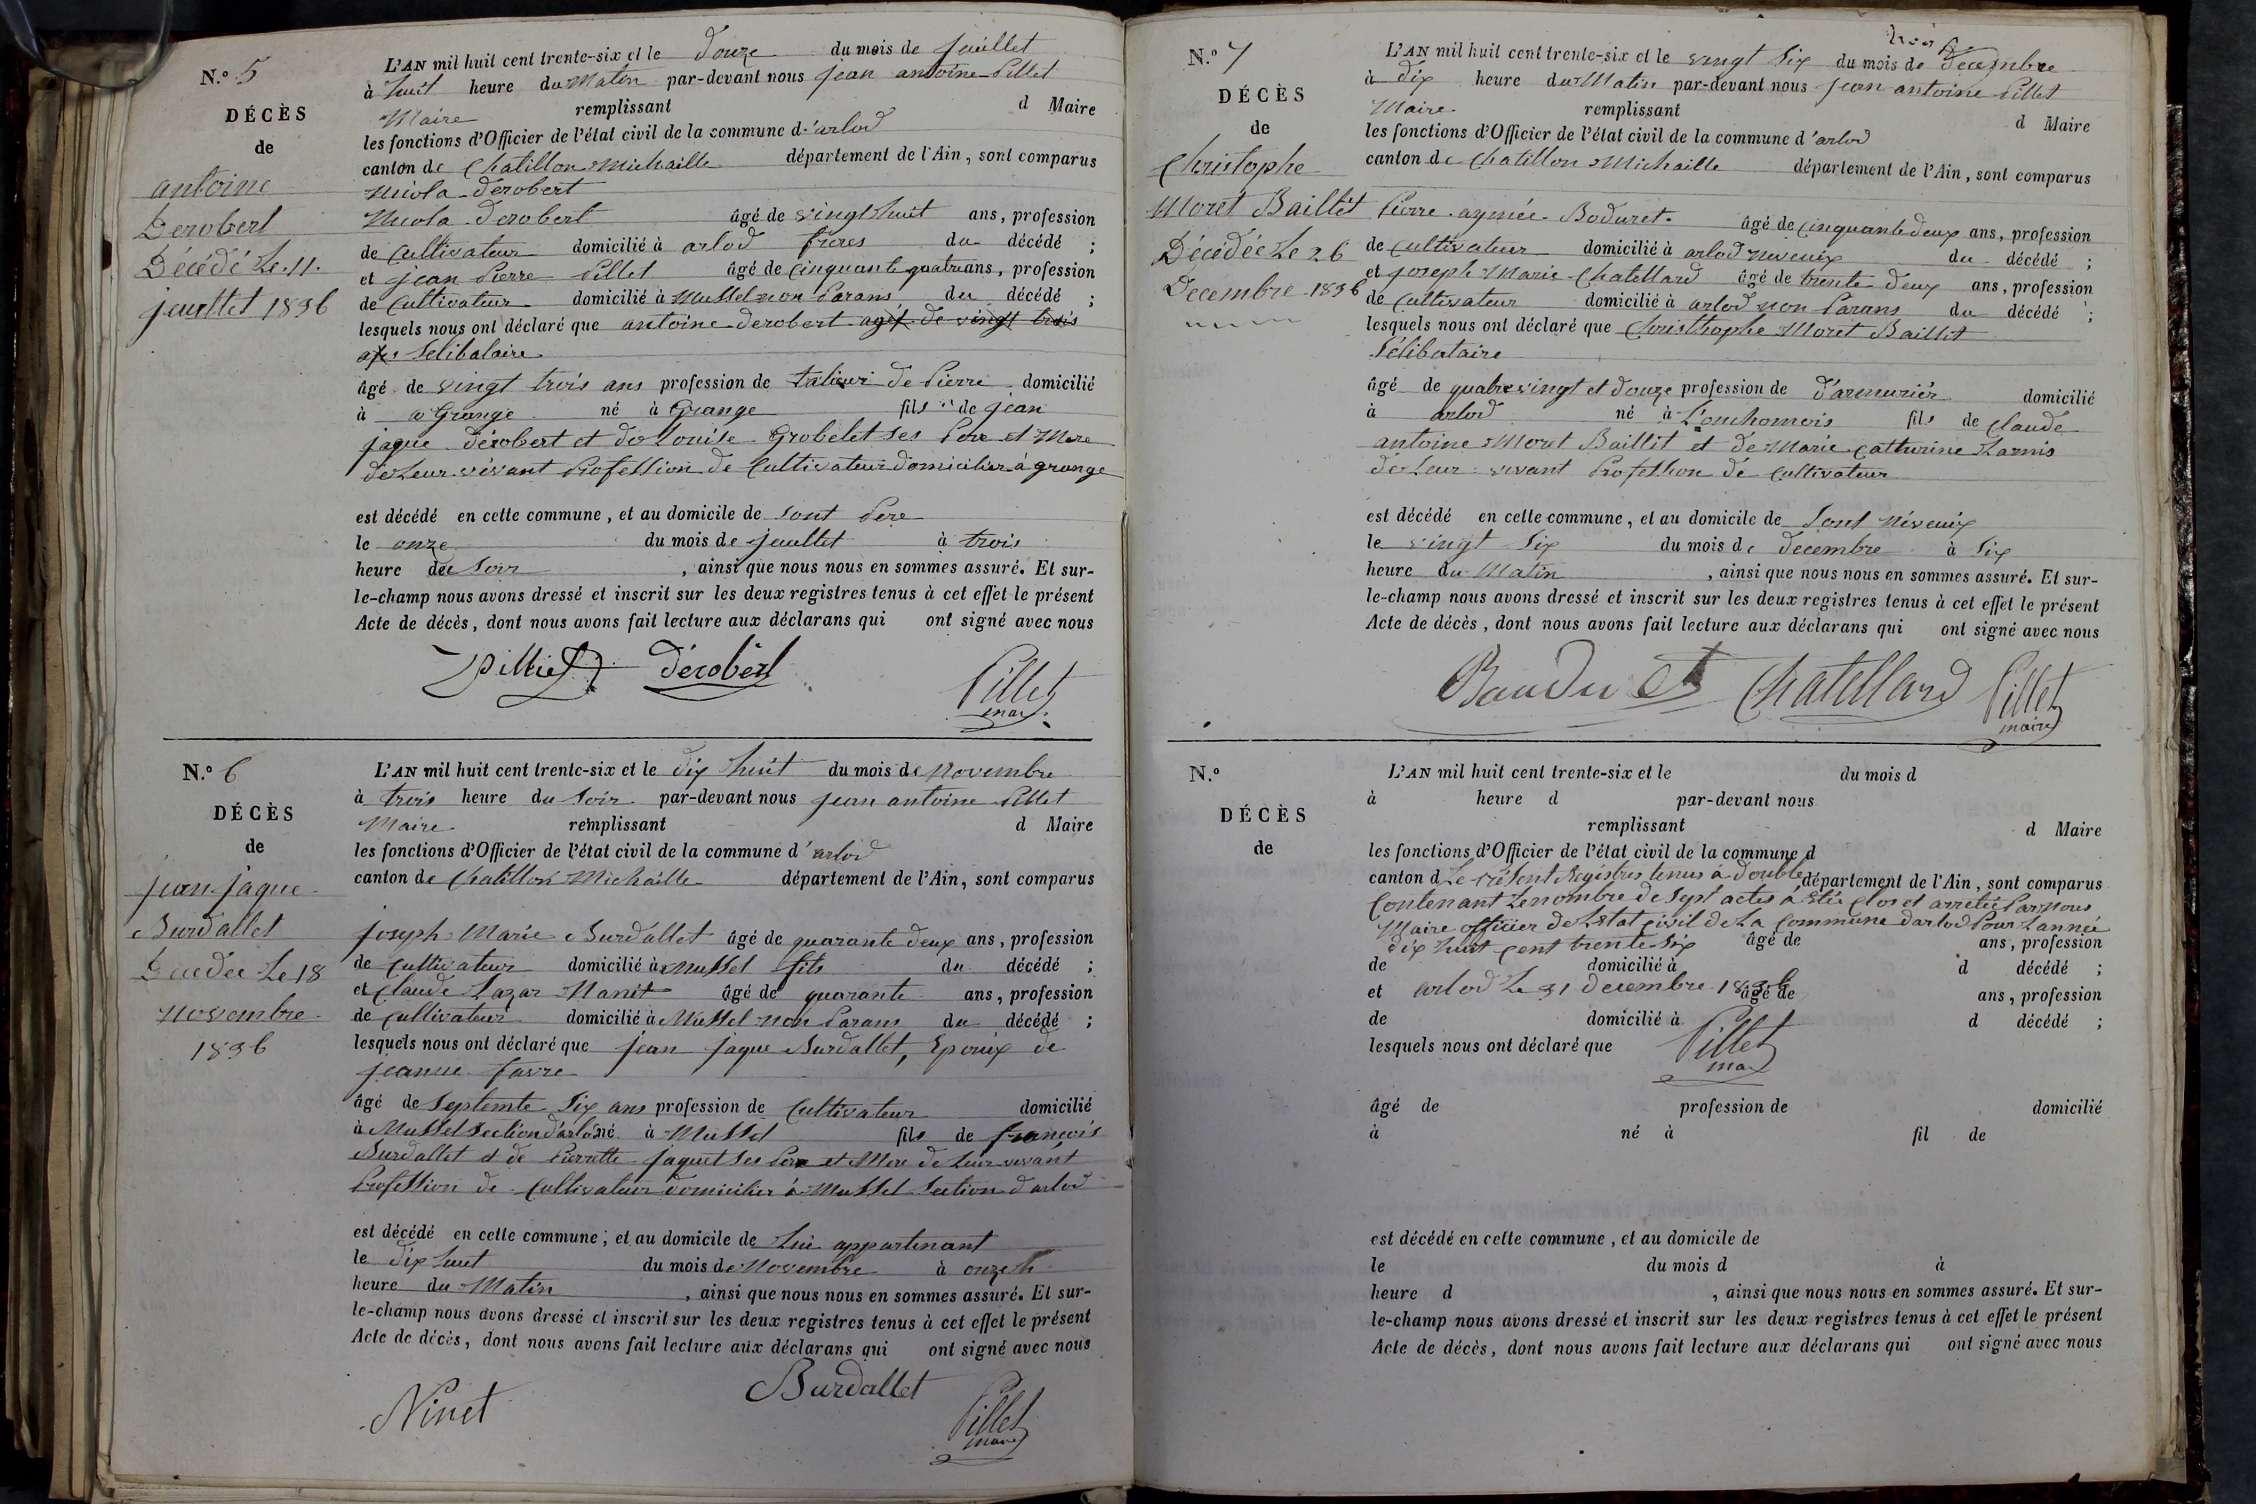 N.º 5
DÉCÈS
de
antoine
Derobert
Décédé Le 11.
jeuillet 1836
L'AN mil huit cent trente-six et le douze du mois de jeuillet
à huit heure du Matin par-devant nous jean antoine Pillet
Maire remplissant d Maire
les fonctions d'Officier de l'état civil de la commune d'arlod
canton de Chatillon Michaille département de l'Ain, sont comparus
Nicola Derobert
Nicola Derobert âgé de vingt huit ans, profession
de Cultivateur domicilié à arlod freres du décédé ;
et jean Pierre Pillet âgé de Cinquante quatre ans, profession
de Cultivateur domicilié à Mussel non Parans du décédé ;
lesquels nous ont déclaré que antoine derobert agé de vingt trois
ans Selibataire
âgé de vingt trois ans profession de de Pierre domicilié
à a Grange né à Grange fils de jean
jaque dérobert et de Louise Grobelet ses Pere et Mere
de Leur vivant Profession de Cultivateur domicilier à grange
est décédé en cette commune, et au domicile de sont Pere
le onze du mois de jeuillet à trois
heure du Soir , ainsi que nous nous en sommes assuré. Et sur-
le-champ nous avons dressé et inscrit sur les deux registres tenus à cet effet le présent
Acte de décès, dont nous avons fait lecture aux déclarans qui ont signé avec nous
Pilliet dérobert Pillet
maire
N.º 6
DÉCÈS
de
jean jaque
Burdallet
Decedee Le 18
novembre
1836
L'AN mil huit cent trente-six et le dix huit du mois de Novembre
à trois heure du Soir par-devant nous jean antoine Pillet
Maire remplissant d Maire
les fonctions d'Officier de l'état civil de la commune d'arlod
canton de Chatillon Michaille département de l'Ain, sont comparus
joseph Marie Burdallet âgé de quarante deux ans, profession
de Cultivateur domicilié à Mussel fils du décédé ;
et Claude Lazar Nanet âgé de quarante ans, profession
de Cultivateur domicilié à Mussel non Parans du décédé ;
lesquels nous ont déclaré que jean jaque Burdallet, Epouix de
jeanne favre
âgé de Septente Six ans profession de Cultivateur domicilié
à Mussel Section d'arlod né à Mussel fils de françois
Burdallet et de Pierrette jaquet ses Pere et Mere de Leur vivant
Profession de Cultivateur domicilier à Mussel Section d'arlod
est décédé en cette commune, et au domicile de Lui appartenant
le dix huit du mois de Novembre à onze h
heure du Matin , ainsi que nous nous en sommes assuré. Et sur-
le-champ nous avons dressé et inscrit sur les deux registres tenus à cet effet le présent
Acte de décès, dont nous avons fait lecture aux déclarans qui ont signé avec nous
Ninet Burdallet Pillet
maire
N.º 7
DÉCÈS
de
Christophe
Moret Baillet
Décédée Le 26
Decembre 1836
L'AN mil huit cent trente-six et le vingt Six du mois de Decembre
à dix heure du Matin par-devant nous jean antoine Pillet
Maire remplissant d Maire
les fonctions d'Officier de l'état civil de la commune d'arlod
canton de Chatillon Michaille département de l'Ain, sont comparus
Pierre aymée Boduret âgé de Cinquante deux ans, profession
de Cultivateur domicilié à arlod neveuix du décédé ;
et joseph Marie Chatellard âgé de trente deux ans, profession
de Cultivateur domicilié à arlod non Parans du décédé ;
lesquels nous ont déclaré que Christhophe Moret Baillet
Sélibataire
âgé de quatrevingt et douze profession de d'armuriér domicilié
à arlod né à Lonchomois fils de Claude
antoine Moret Baillet et de Marie Catherine
de Leur vivant Profession de Cultivateur
est décédé en cette commune, et au domicile de Sont néveuix
le vingt Six du mois de decembre à Six
heure du Matin , ainsi que nous nous en sommes assuré. Et sur-
le-champ nous avons dressé et inscrit sur les deux registres tenus à cet effet le présent
Acte de décès, dont nous avons fait lecture aux déclarans qui ont signé avec nous
Baudu et Chatellard Pillet
maire
N.º
DÉCÈS
de
L'AN mil huit cent trente-six et le du mois d
à heure d par-devant nous
remplissant d Maire
les fonctions d'Officier de l'état civil de la commune d
canton d Le Présent Régistres tenus à double département de l'Ain, sont comparus
Contenant Le nombre de Sept actes à Etée Clos et arrêtée Par nous
Maire officier de Letat civil de La Commune darlod Pour Lannée
dix huit Cent trente Six âgé de ans, profession
de domicilié à d décédé ;
et arlod Le 31 decembre 1836 âgé de ans, profession
de domicilié à d décédé ;
lesquels nous ont déclaré que Pillet
maire
âgé de profession de domicilié
à né à fil de
est décédé en cette commune, et au domicile de
le du mois d à
heure d , ainsi que nous nous en sommes assuré. Et sur-
le-champ nous avons dressé et inscrit sur les deux registres tenus à cet effet le présent
Acte de décès, dont nous avons fait lecture aux déclarans qui ont signé avec nous